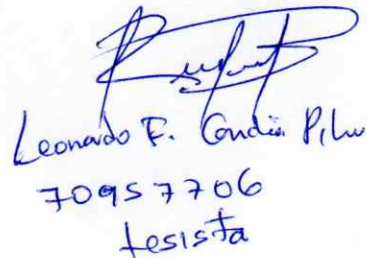 Leonardo F. Condia Pilu
70957706
tesista